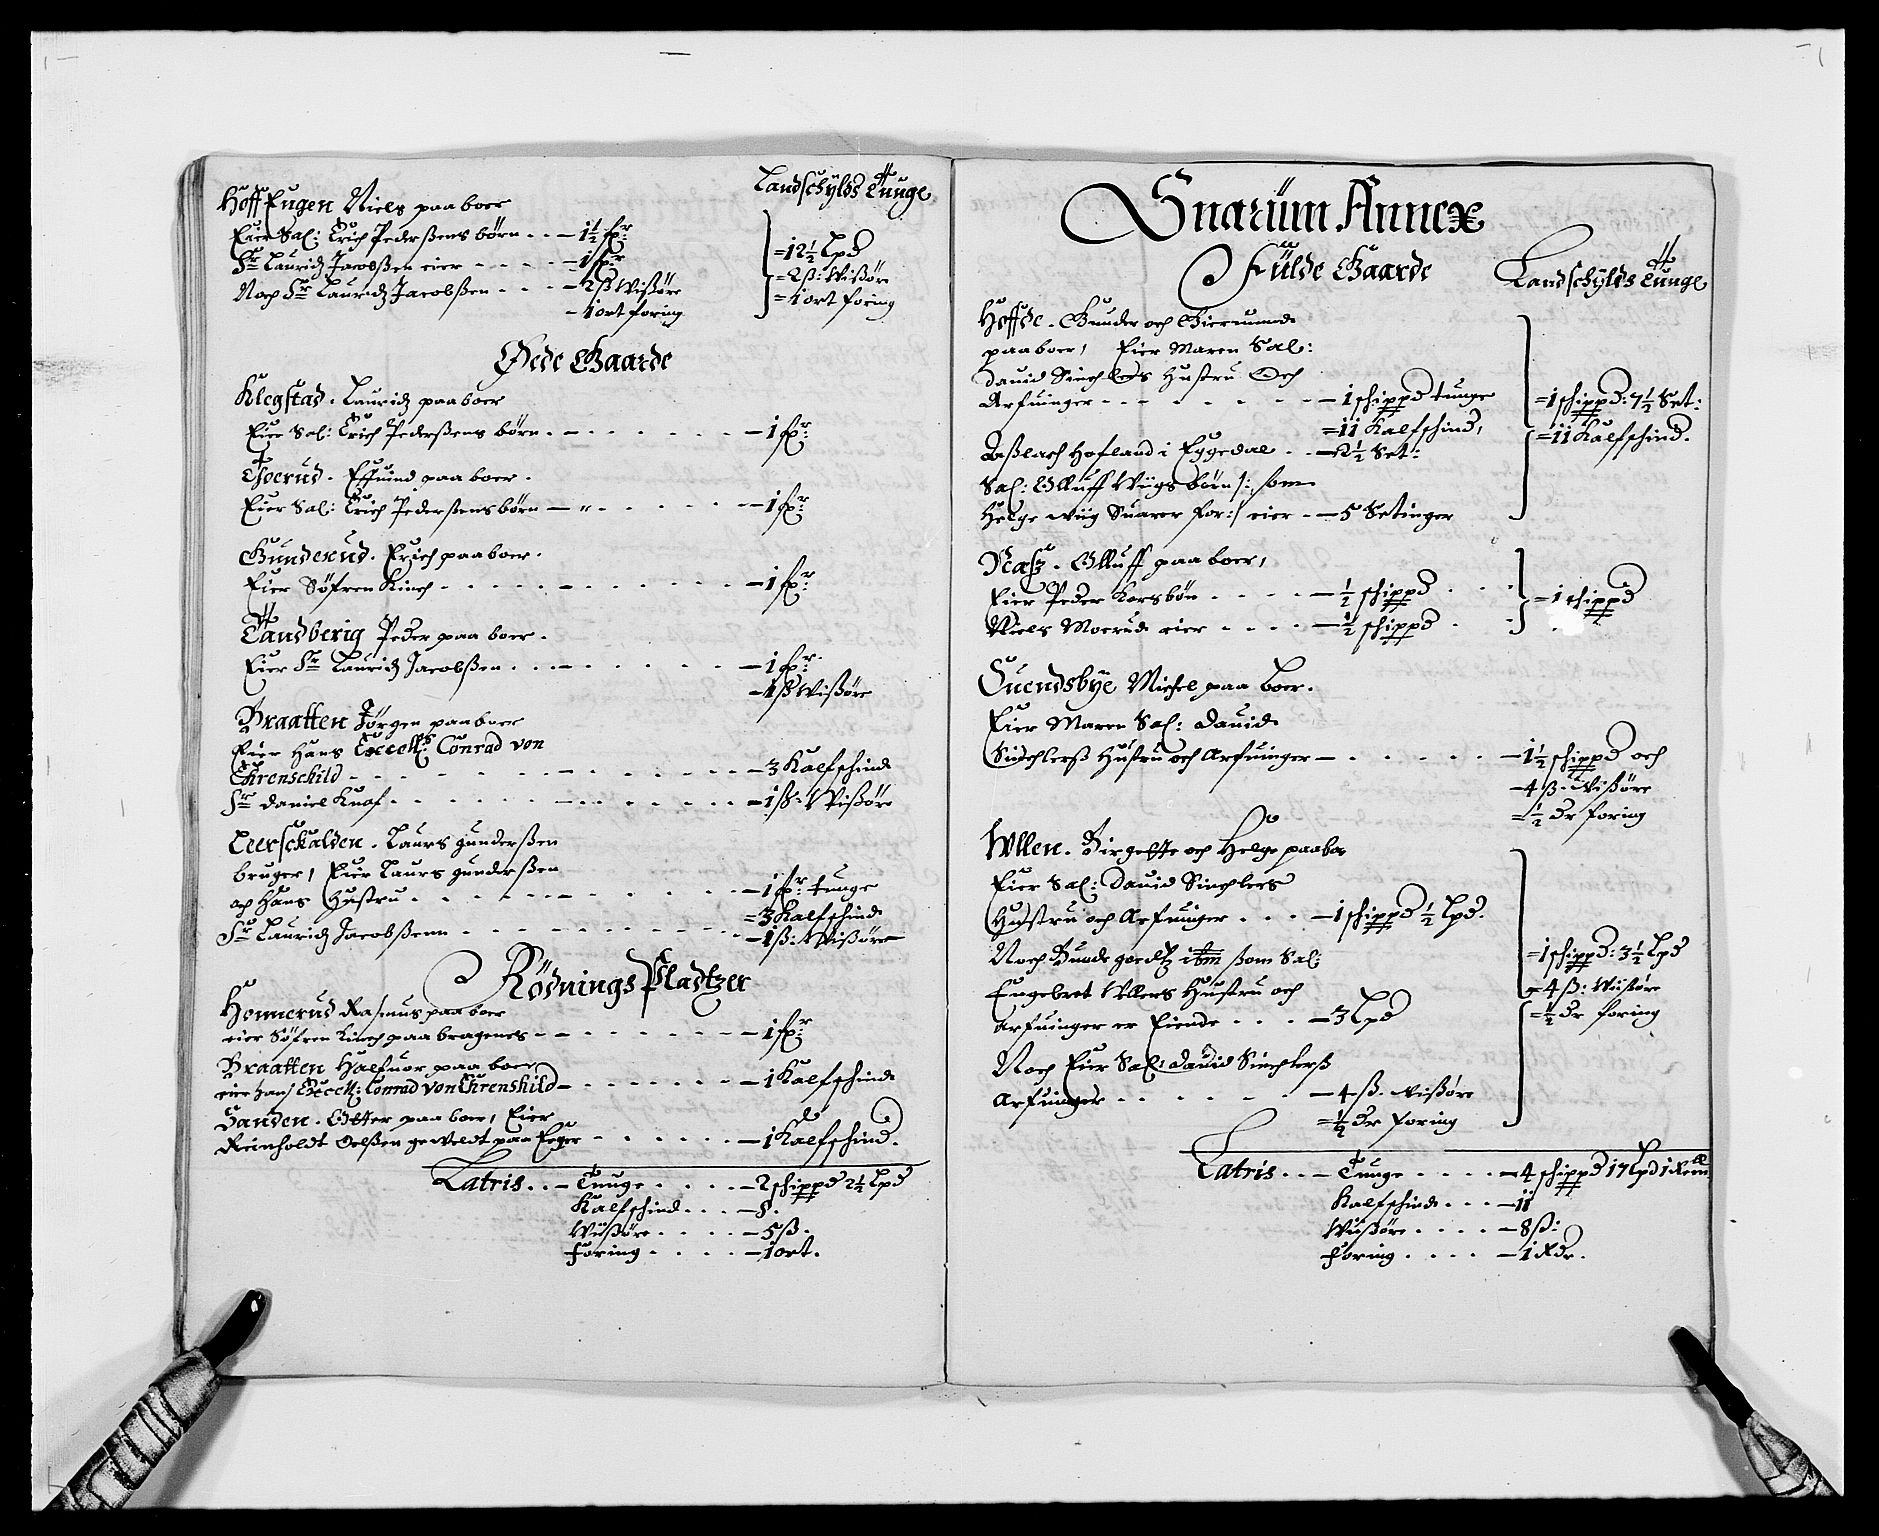 Landschÿlds Tunge
Hoff Eugen Niels paaboer
Eier Sal: Erich Pederßens börn . . – 1½ fpr:
Sr Lauridz Jacobßen eier – 1 fpr:
Noch Sr Lauridz Jacobßen . . . – 2 ß Wißöre
– 1 ort foring
= 12½ Lpd
= 2 ß: Wißöre
= 1 ort foring
Øede Gaarde
Klegstad . Lauridz paaboer
Eier Sal: Erich Pederßens börn . – 1 fpr:
Toerud . Effuind paaboer .
Eier Sal: Erich Pederßens börn – 1 fpr:
Gunderud . Erich paaboer .
Eier Söfren Kinch . – 1 fpr:
Tandberig Peder paa boer .
Eier Sr Lauridz Jacobßen . . . – 1 fpr:
– 4 ß Wißöre
Braatten Jörgen paaboer
Eier Hans Excell: Conrad von
Ehrenschild – 3 Kalfschind
Sr Daniel Knof . – 1 ß: Wißöre
Leerschalden . Laurs Gunderßen
bruger, Eier Laurs Gunderßen
och Hans Hustru . – 1 fpr: tunge
= 3 Kalfschind
Sr Lauridz Jacobßenn – 1 ß: Wißöre
Rödnings Pladtzer
Honnerud Rasmus paaboer
eier Söfren Kinch paa bragenes – 1 fpr:
Braatten Halfuor paa boer
eier Hans Excell: Conrad von Ehrenshild – 1 Kalfschind
Sanden . Otter paa boer, Eier
Reinholdt Oelßen geweldt paa Eger – 1 Kalfschind .
Latris . . – Tunge . . . . – 2 schippd 2½ Lpd
Kalfschind . . . – 8 .
Wißöre . . . . – 5 ß .
Foring . . . . – 1 ort .
Snarüm Annex
Fülde Gaarde
Landschÿlds Tunge
Hoffde . Gunder och Biermund
paaboer, Eier Maren Sal:
Dauid Sinchlers Hustru Och
Arfuinger – 1 schippd tunge
= 11 Kalfschind,
Aßlach Hofland i Eggedal . . – 2½ Set:
Sal: Olluff Wiigs börn /: som
Helge Wiig Suarer for :/ eier . – 5 Setinger
= 1 schippd: 7½ Set:
= 11 Kalfschind .
Næsz . Olluff paa boer,
Eier Peder Korsbön . . . . – ½ schippd
Niels Moerud eier . . . . – ½ schippd
= 1 schippd
Suendsbÿe Michel paa boer .
Eier Maren Sal: Dauid
Sinchlerß Hustru och Arfuinger – 1½ schippd och
– 4 ß. Wißöre
= ½ Dr foring
Ullen . Birgette och Helge paaboer
Eier Sal: Dauid Sinchlers
Hustru och Arfuinger . . . – 1 schippd ½ Lpd .
Noch Bunde goedtz ibm ßom Sal:
Engebret Ullers Hustru och
Arfuinger er Eiende . . . – 3 Lpd
Noch Eier Sal: Dauid Sinchlerß
Arfuinger . – 4 ß. Wißöre
= ½ Dr foring
= 1 schippd: 3½ Lpd
= 4 ß: Wißöre
= ½ Dr foring
Latris . . – Tunge . . . . – 4 schippd 17 Lpd 1 Rem
Kalfschind . . . – 11
Wißöre . . . . – 8 ß:
Foring . . . . – 1 Rdr .